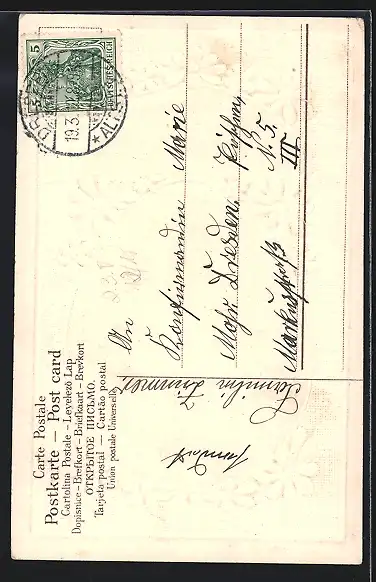 Carte Postale
Postkarte — Post card
Cartolina Postale – Levelező Lap
Dopisnice – Brefkort – Briefkaart – Brevkort
ОТКРЫТОЕ ПИСЬМО.
Tarjeta postal — Cartão postal
Union postale Universelle
5
DEUTSCHES REICH
DRESDEN
19.3.
* ALTST.
An
Konfirmandin Marie
Mohr Dresden
N. 5
III
Markusstraß
Familie Zimmer